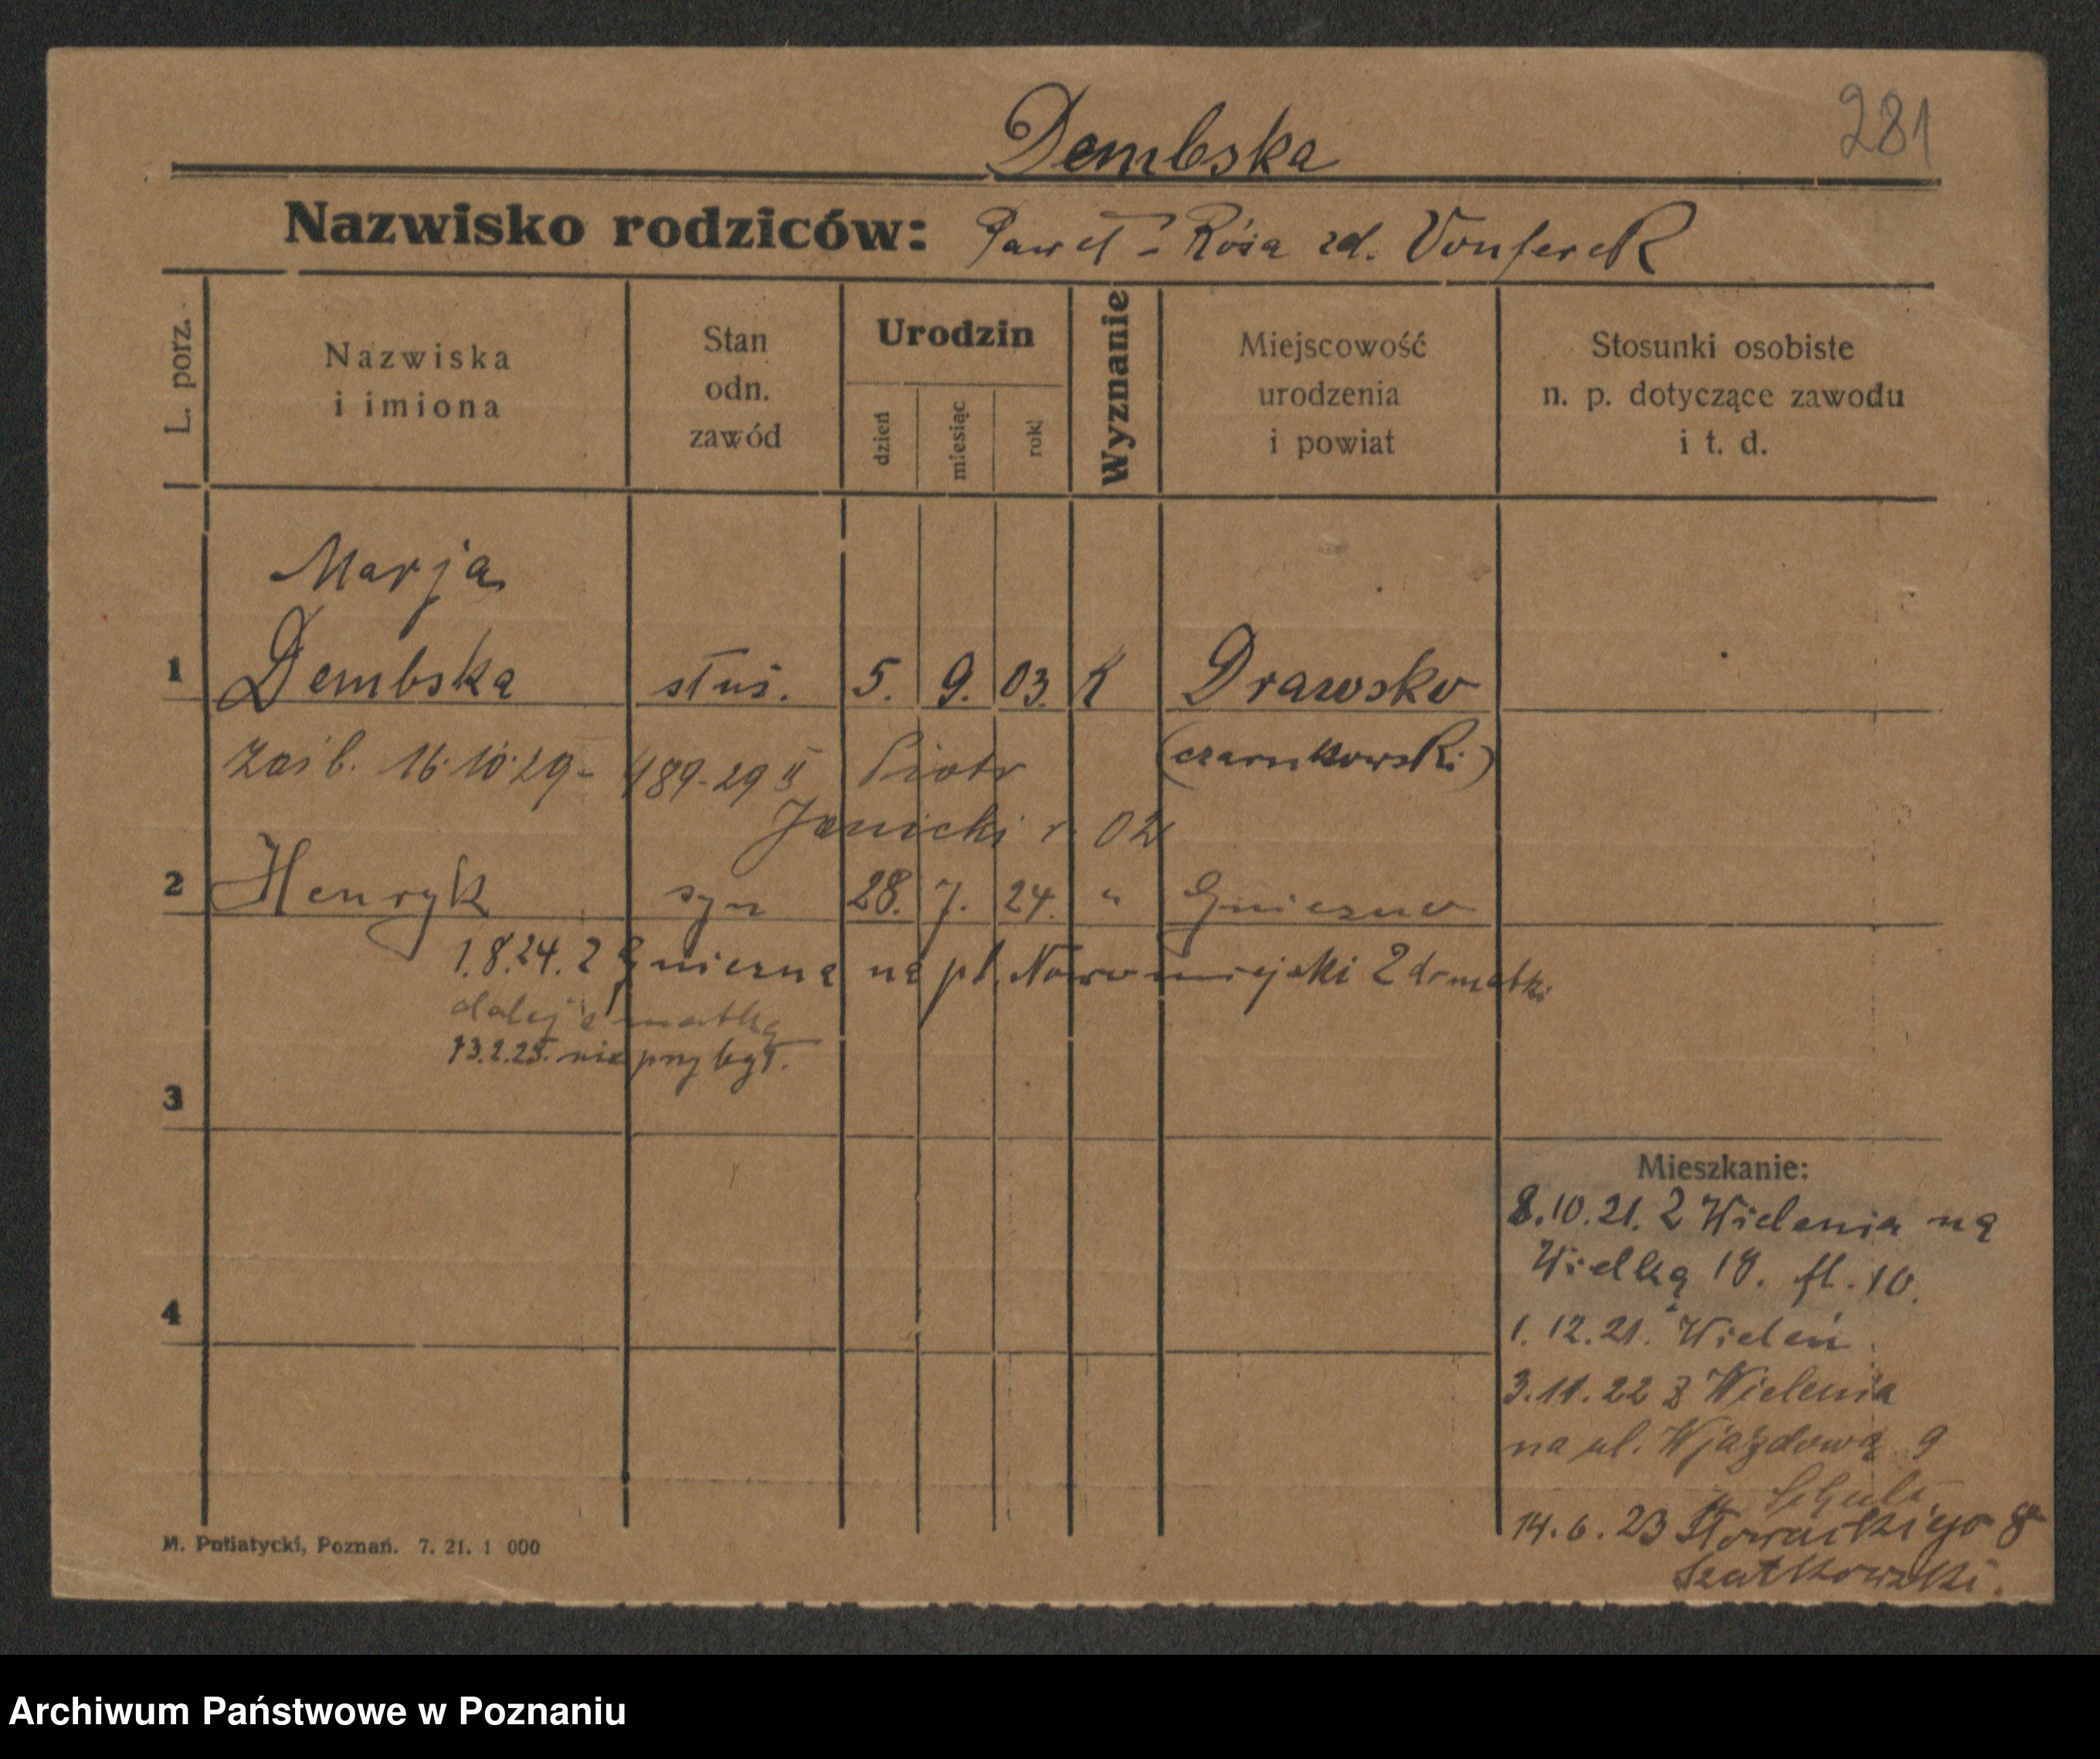 281
Dembska
Nazwisko rodziców: Paweł - Róża zd. Vonferek
L. porz.
Nazwiska
i imiona
Stan
odn.
zawód
Urodzin
dzień
miesiąc
rok
Wyznanie
Miejscowość
urodzenia
i powiat
Stosunki osobiste
n. p. dotyczące zawodu
i t. d.
Marja
1 Dembska służ. 5. 9. 03. K Drawsko
(czarnkowski)
Zaśl. 16.10.29- 489-29 II Piotr
Janicki r. 02
2 Henryk syn 28. 7. 24. " Gniezno
1.8.24. z Gniezna na pl. Nowomiejski 2 do matki
dalej z matką
13.2.25. nie przybył.
3
4
Mieszkanie:
8.10.21. z Wielenia na
Wielką 18. fl. 10.
1.12.21. Wieleń
3.11.22 z Wielenia
na ul. Wjazdową 9
14.6.23 Słowackiego 8
Szatkowski.
M. Putiatycki, Poznań. 7. 21. 1 000
Archiwum Państwowe w Poznaniu